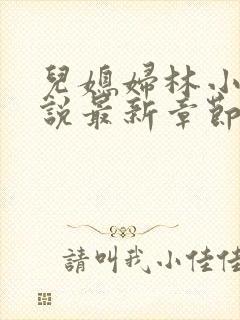 兒媳婦林小
說最新章節
請叫我小佳佳